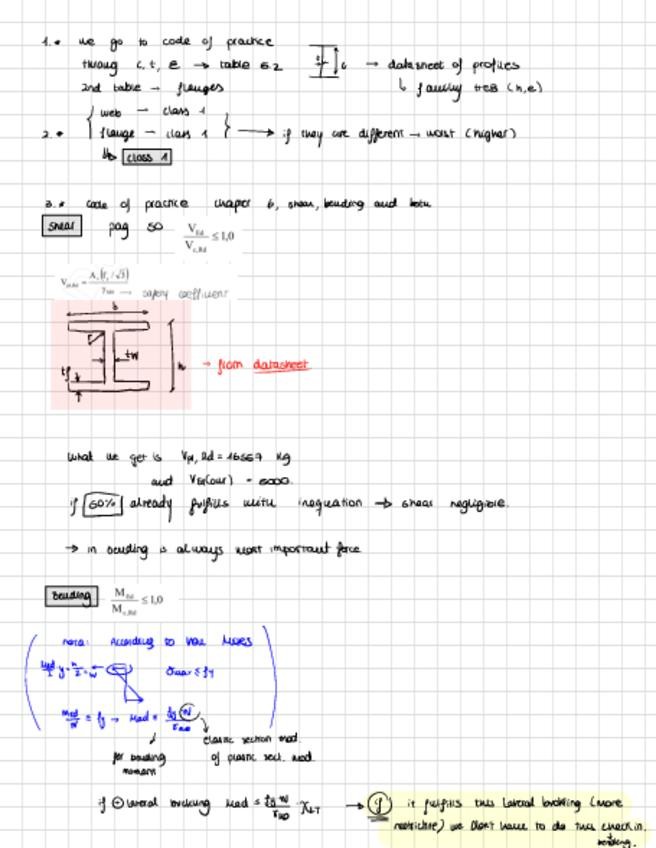 1. • we go to code of practice
throug c, t, e → table 5.2 c → datasheet of profiles
2nd table → flanges ↳ family HEB (h, e)
web – class 1
2. • flange – class 1 → if they are different → worst (higher)
class 1
3. • code of practice chapter 6, shear, bending and both
Shear pag 50 V_Ed / V_c,Rd ≤ 1,0
V_pl,Rd = A_v (f_y / √3) / γ_M0 → safety coefficient
b
r tw h
tf → from datasheet
what we get is Vpl, Rd = 16567 kg
and VEd(our) = 6000.
if 50% already fulfills with inequation → shear negligible.
→ in bending is always most important force
Bending M_Ed / M_c,Rd ≤ 1,0
nota: According to Von Mises
σmax ≤ fy
Med / W = fy → Med =
elastic section mod.
for bending of plastic sect. mod.
moment
if ⊕ lateral buckling Med ≤ fy W / γM0 χLT → if it fulfills this lateral buckling (more
restrictive) we don't have to do this check in
bending.